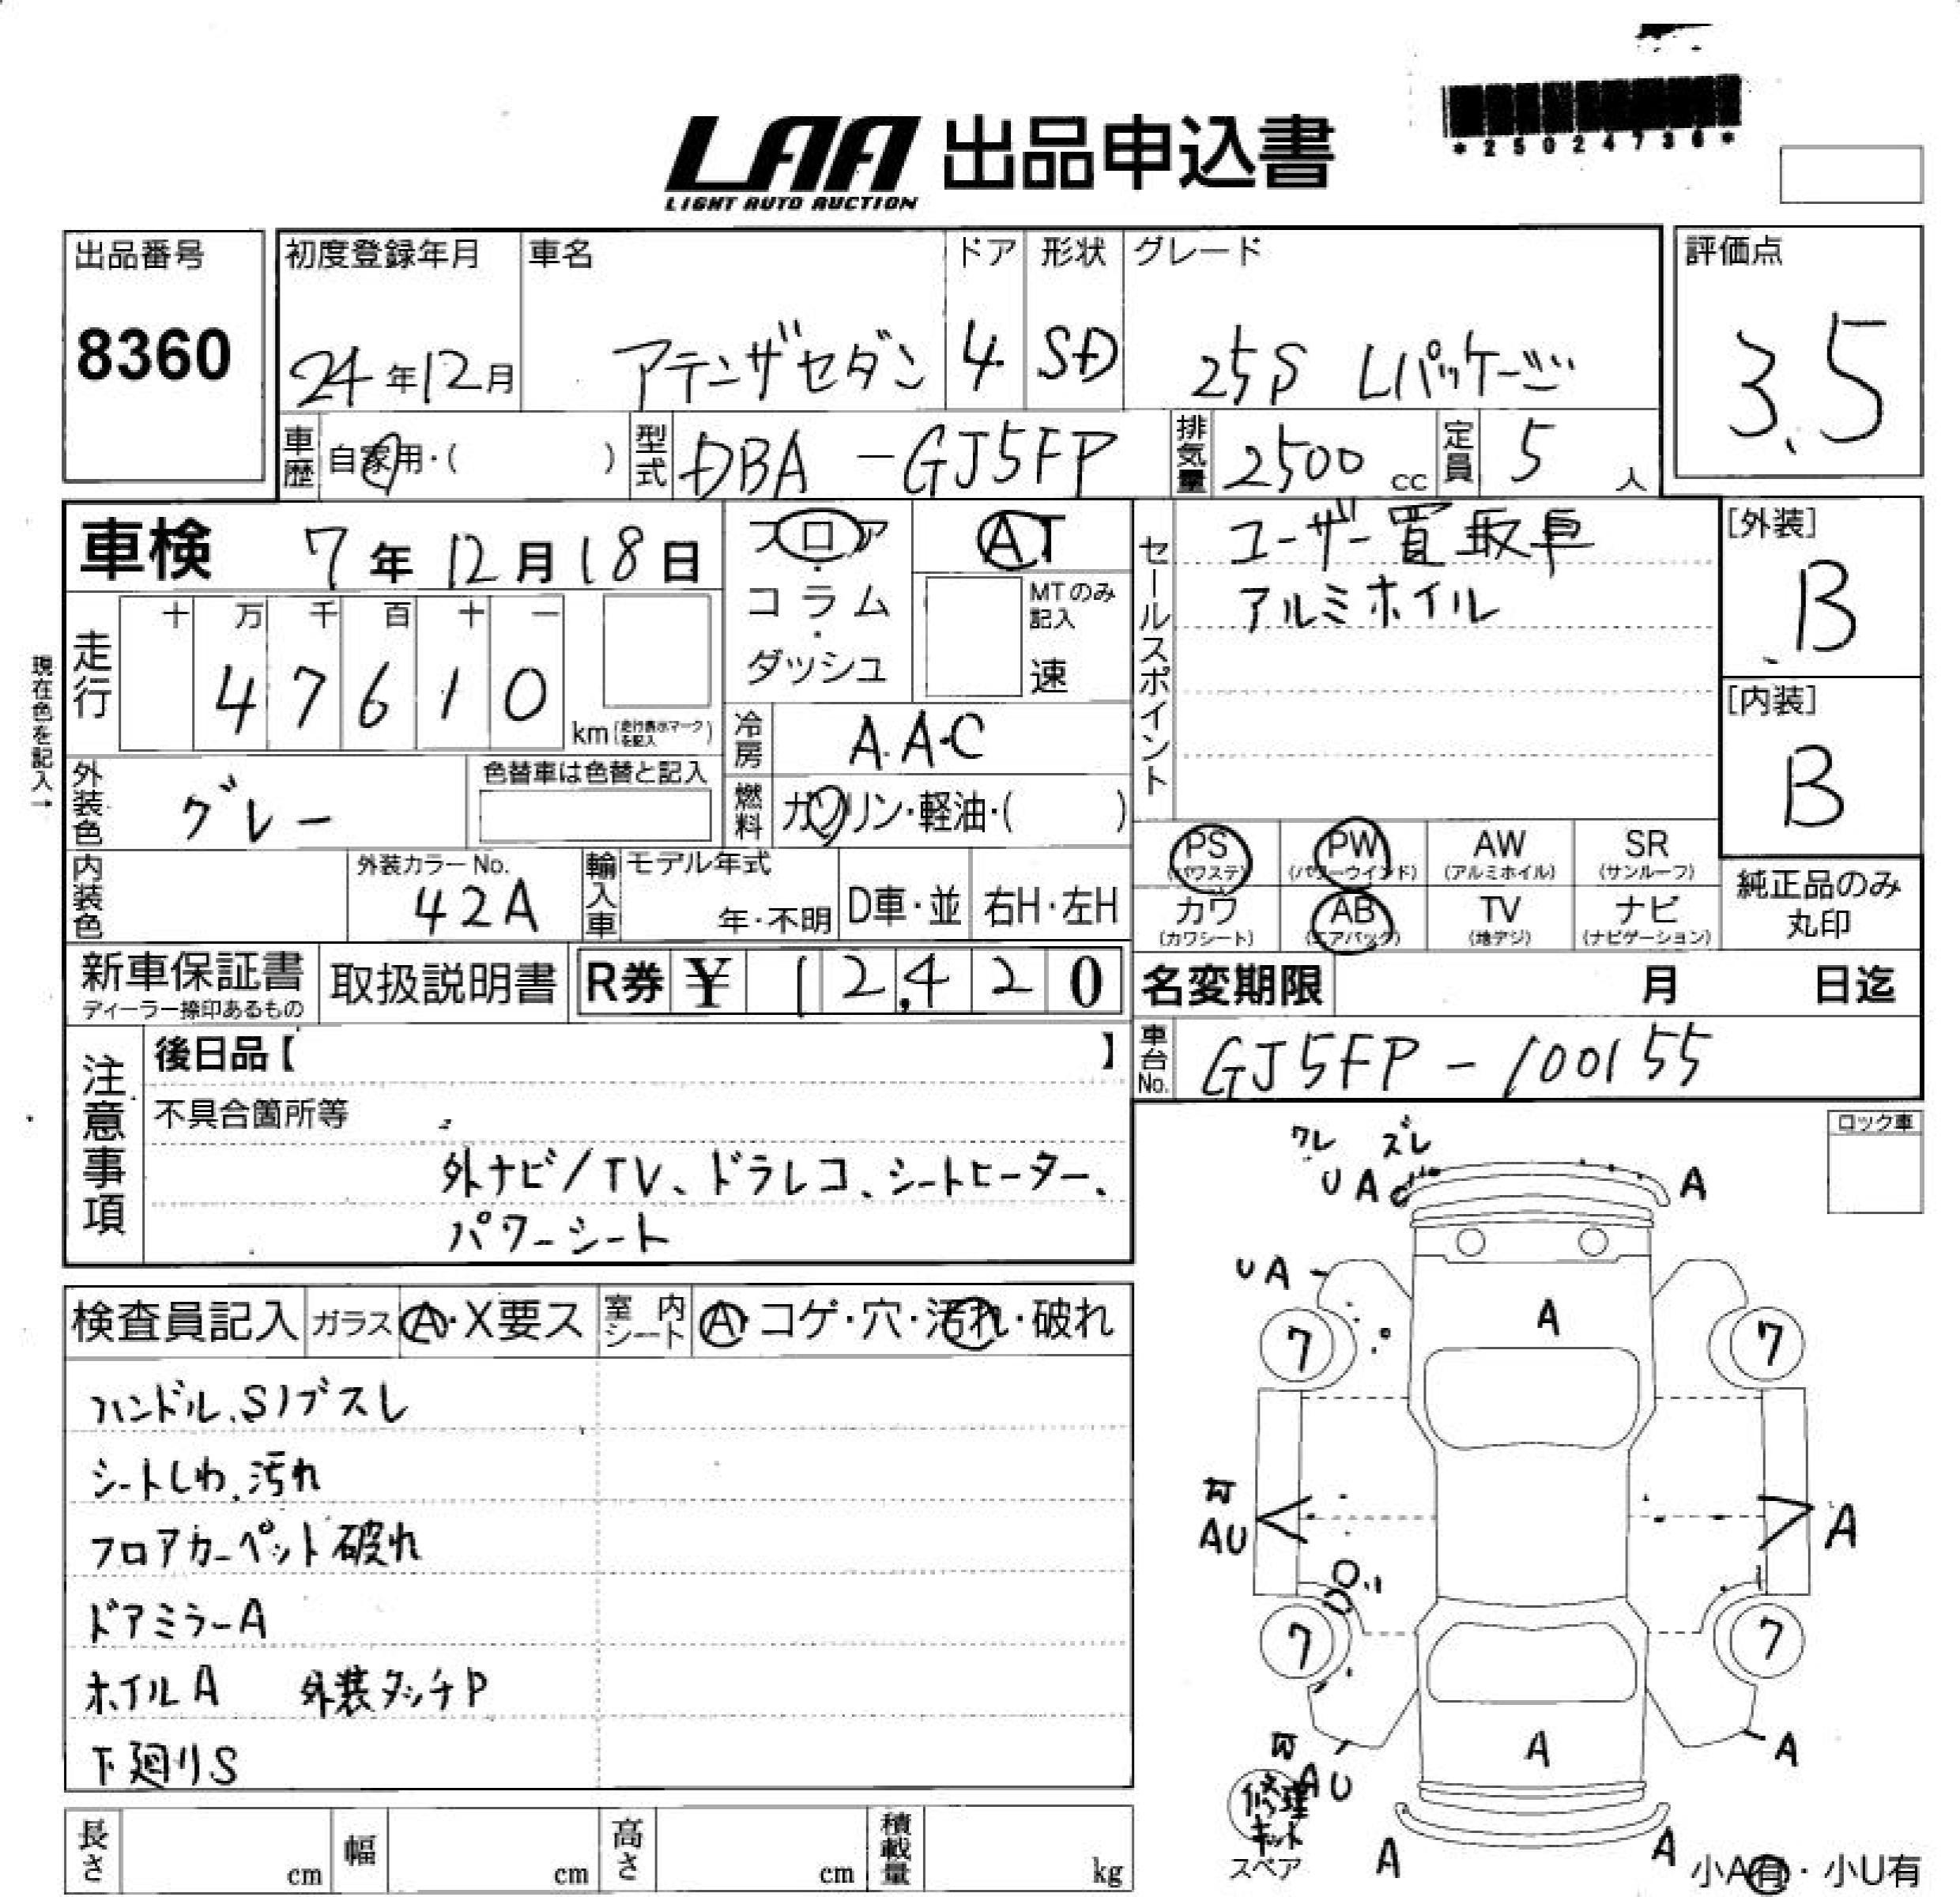 *25024736*
LAA 出品申込書
LIGHT AUTO AUCTION
出品番号
8360
初度登録年月
24年12月
車名
アテンザセダン
ドア
4
形状
SD
グレード
25S Lパッケージ
評価点
3.5
車歴
自家用・( )
型式
DBA-GJ5FP
排気量
2500 cc
定員
5 人
車検 7年12月18日
フロア
・
コラム
・
ダッシュ
AT
MTのみ
記入
速
セールスポイント
ユーザー買取車
アルミホイル
[外装]
B
[内装]
B
現在色を記入→
走行
十 万 千 百 十 一
4 7 6 1 0
km(走行表示マークを記入)
冷房
A.A.C
燃料
ガソリン・軽油・( )
外装色
グレー
色替車は色替と記入
内装色
外装カラーNo.
42A
輸入車
モデル年式
年・不明
D車・並
右H・左H
PS
(パワステ)
PW
(パワーウインド)
AW
(アルミホイル)
SR
(サンルーフ)
カワ
(カワシート)
AB
(エアバッグ)
TV
(地デジ)
ナビ
(ナビゲーション)
純正品のみ
丸印
新車保証書
ディーラー捺印あるもの
取扱説明書
R券 ¥ 12,420
名変期限 月 日迄
車台No.
GJ5FP-100155
注意事項
後日品【 】
不具合箇所等
外ナビ/TV、ドラレコ、シートヒーター、
パワーシート
ロック車
ワレ ズレ
U A
A
UA
A
7
7
AU
A
7
7
A
A
AU
修理
キット
スペア
A
A
小A有・小U有
検査員記入
ガラス
A・X要ス
室内シート
A・コゲ・穴・汚れ・破れ
ハンドル、Sノブスレ
シートしわ、汚れ
フロアカーペット破れ
ドアミラーA
ホイルA 外装タッチP
下廻りS
長さ cm
幅 cm
高さ cm
積載量 kg